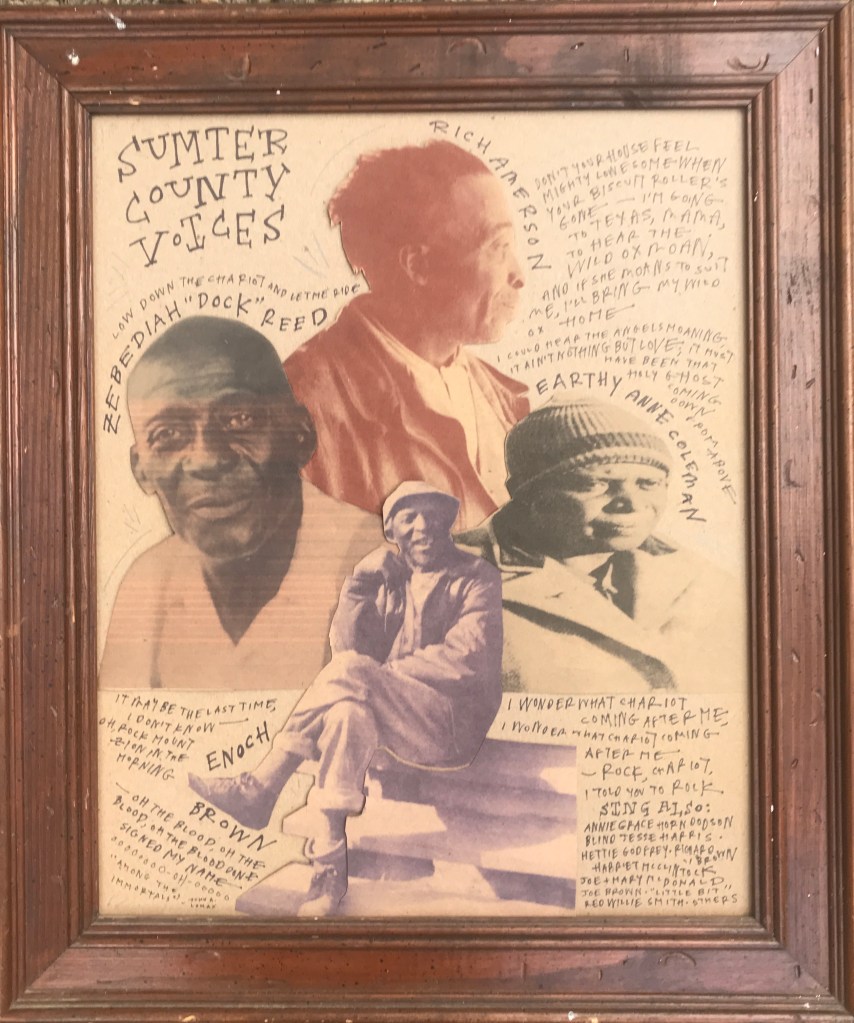 SUMTER
COUNTY
VOICES
RICH AMERSON
DON'T YOUR HOUSE FEEL
MIGHTY LONESOME WHEN
YOUR BISCUIT ROLLER'S
GONE — I'M GOING
TO TEXAS, MAMA,
TO HEAR THE
WILD OX MOAN,
AND IF SHE MOANS TO SUIT
ME, I'LL BRING MY WILD
OX HOME
LOW DOWN THE CHARIOT AND LET ME RIDE
ZEBEDIAH "DOCK" REED
I COULD HEAR THE ANGELS MOANING,
IT AIN'T NOTHING BUT LOVE; IT MUST
HAVE BEEN THAT
HOLY GHOST
COMING
DOWN FROM ABOVE
EARTHY ANNE COLEMAN
IT MAY BE THE LAST TIME,
I DON'T KNOW —
OH, ROCK MOUNT
ZION IN THE
MORNING
ENOCH
BROWN
— OH THE BLOOD, OH THE
BLOOD, OH THE BLOOD DONE
SIGNED MY NAME
"AMONG THE
IMMORTALS" - JOHN A.
LOMAX
I WONDER WHAT CHARIOT
COMING AFTER ME,
I WONDER WHAT CHARIOT COMING
AFTER ME
— ROCK, CHARIOT,
I TOLD YOU TO ROCK
SING ALSO:
ANNIE GRACE HORN DODSON
BLIND JESSE HARRIS.
HETTIE GODFREY. RICHARD
BROWN
HARRIET MCCLINTOCK
JOE + MARY MCDONALD
JOE BROWN. "LITTLE BIT"
RED WILLIE SMITH. OTHERS